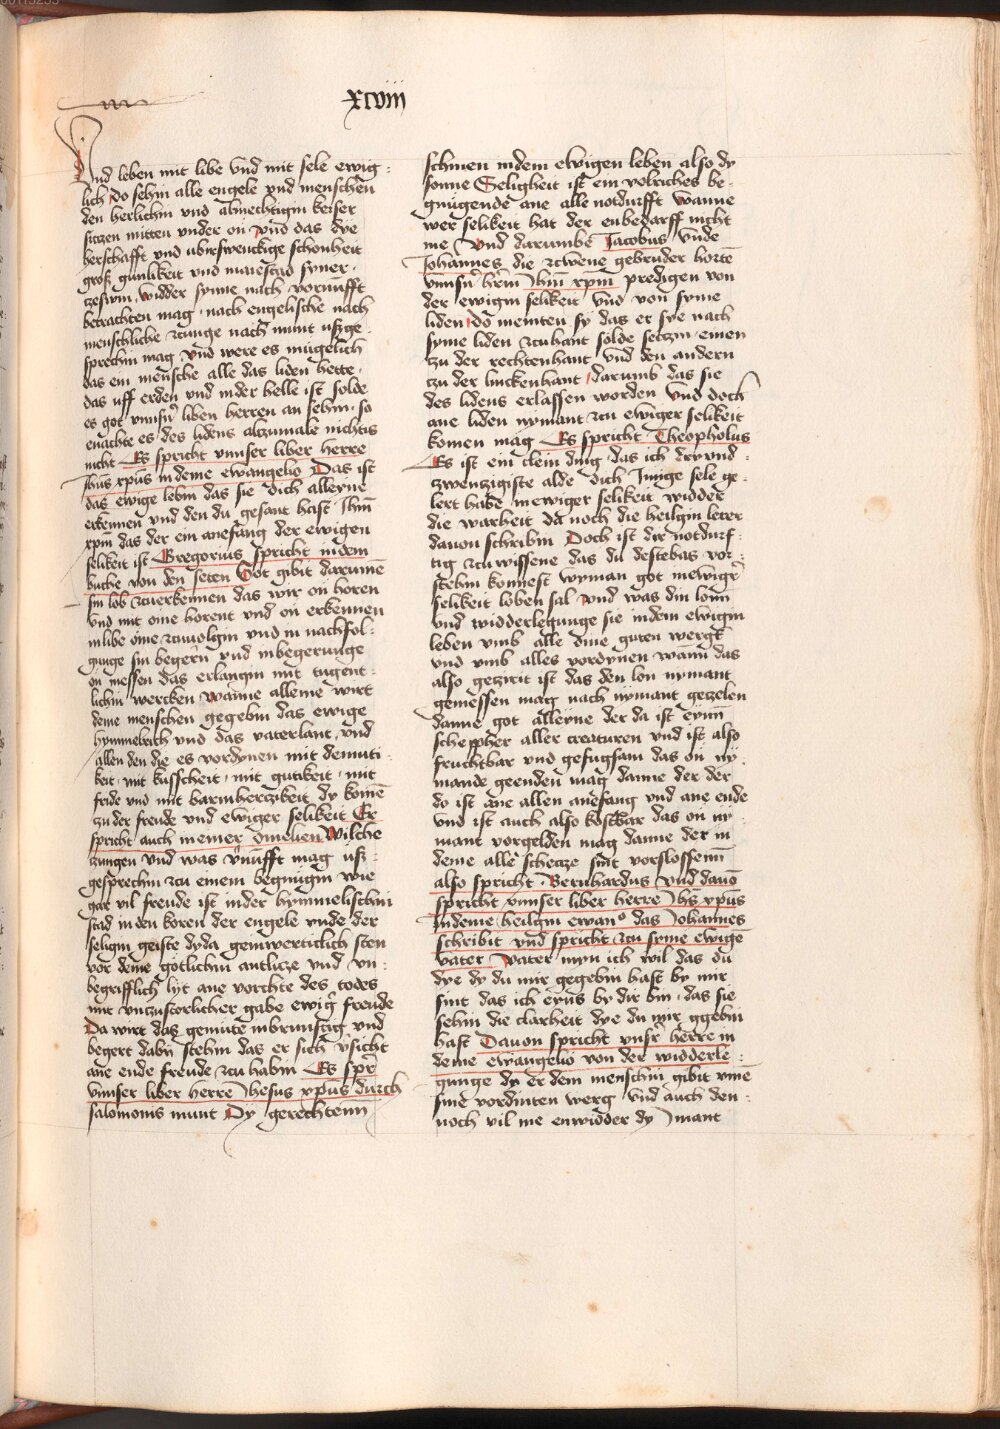 xcviii
Und leben mit libe vnd mit sele ewig
lich Do sehin alle engele vnd menschen
den herlichin vnd almechtigin keiser
siczen mitten vnder on vnd das dye
herschafft vnd vbirswenckige schonheit
groß gunlikeit vnd maiestad syner
zeswin widder synne nach vornufft
betrachten mag nach engelische nach
menschliche zcunge nach munt vßge
sprechin mag vnd were es mugelich
das ein mensche alle das liden hette
das vff erden vnd inder helle ist solde
es got vnnsn liben herren an sehin so
enachte es des lidens alczumale nichtis
nicht Es spricht vnnser liber herre
Jhus xpus in deme ewangelio Das ist
das ewige lebin das sie dich alleyne
erkennen vnd den du gesant hast Jhm
xpm das der ein anefang der ewigen
selikeit ist Gregorius spricht in dem
buche von den seten Got gibit darume
sin lob zcuerkennen das wir on horen
vnd mit ome horent vnd on erkennen
in libe ome zcuuolgin vnd in nachfol
gunge sin begern vnd in begerunge
on messen das erlangin mit tugent
lichin wercken wanne alleine wirt
deme menschen gegebin das ewige
hymmelrich vnd das vaterlant vnd
allen den die es vordynen mit demuti
keit mit kusscheit mit gutikeit mit
fride vnd mit barmherzikeit dy komen
zu der freude vnd ewiger selikeit Er
spricht auch in einer Omelien Wilche
zungen vnd was vnufft mag uß
gesprechin zcu einem begnugin wie
gar vil freude ist inder hymmelischin
stad in den koren der engele vnde der
seligin geiste dy da geinwerticlich sten
vor deme gotlichin antlicze vnd vn
begrifflich lyt ane vorchte des todes
mit vnczustorlicher gabe ewig freude
Da wirt das gemute inbrunstig vnd
begert dabij stehin das er sich vsicht
ane ende freude zcu habin Es spr
vnnser liber herre Jhesus xpus durch
salomonis munt Dy gerechtenn
schinen indem ewigen leben also dy
sonne Seligheit ist ein volriches be
gnugende ane alle notdurfft wanne
wer selikeit hat der enbedarff nicht
me Vnd darumbe Jacobus vnde
Johannes die zcwene gebruder horte
vnnsn hern Jhm xpm predigen von
der ewigin selikeit vnd von syme
liden Do meinten sy das er sye nach
syme liden zcuhant solde setzin einen
zu der rechtenhant vnd den andern
zu der linckenhant darumb das sie
des lidens erlassen worden vnd doch
ane liden nymant zcu ewiger selikeit
komen mag Es spricht Theopholus
Es ist ein clein ding das ich drvnd
zwenzigiste alde dich Jnnige sele ge
lert habe in ewiger selikeit widder
die warheit da noch die heilgin lerer
dauon schribin Doch ist dir notdurf
tig zcu wissene das du destebas vor
stehin konnest wyman got in ewigr
selikeit loben sal vnd was din lonn
vnd widderlegunge sie indem ewigin
leben vmb alle dine guten wergk
vnd vmb alles vordynen wann das
also gezirit ist das den lon nymant
gemessen mag nach nymant gezelen
danne got alleyne der da ist eynn
schepper aller creaturen vnd ist also
fruchtbar vnd gefugsam das on ny
mande geenden mag danne der der
do ist ane allen anefang vnd ane ende
vnd ist auch also kostbar das on ny
mant vorgelden mag danne der in
deme alle schecze sint vorslossenn
also spricht Bernhardus vnd dauo
spricht vnnser liber herre Jhs xpus
indeme heilgin ewano das Johannes
schribit vnd spricht zcu syme ewige
vater Vater myn ich wil das du
dye dy du mir gegebin hast by mir
sint das ich eyns by dir bin das sie
sehin die clarheit dye du mir ggebin
hast Dauon spricht vnsr herre in
deme ewangelio von der widderle
gunge dy er dem menschin gibit vme
sine vordinten werg vnd auch den
noch vil me enwidder dy Jmant